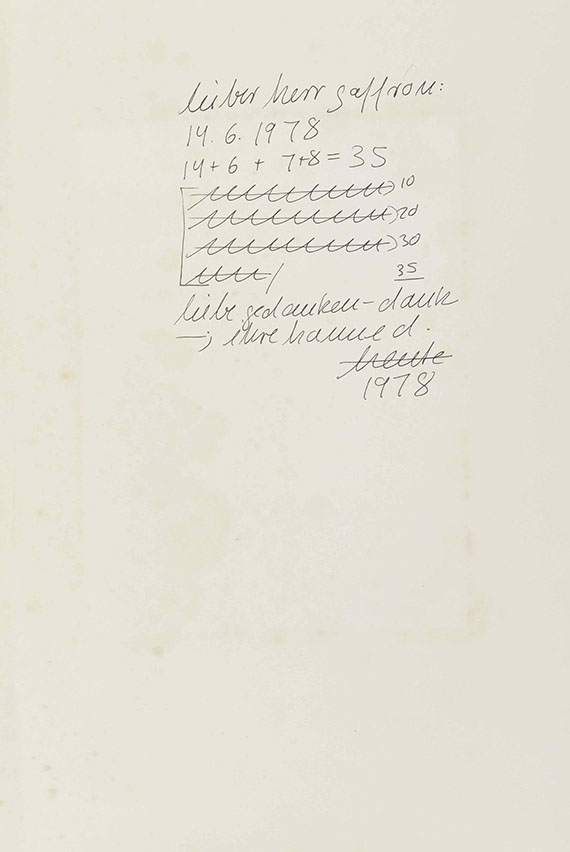 lieber herr gaffron:
14. 6. 1978
14 + 6 + 7+8 = 35
) 10
) 20
) 30
35
liebe gedanken – dank
–; ihre hanne d.
heute
1978